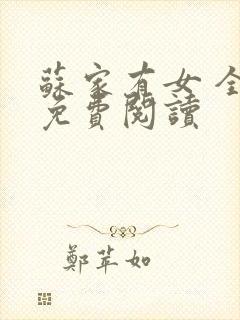 蘇家有女 全
免費閱讀
鄭苹如